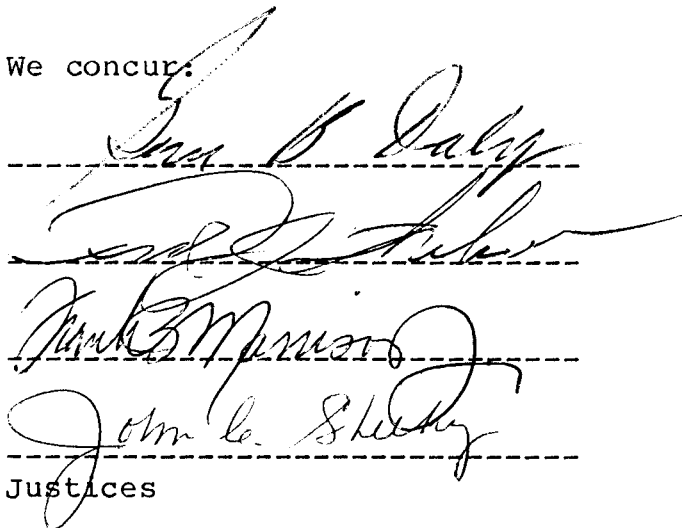 We concur:
Gene B Daly
Frank B Morrison Jr.
John C. Sheehy
Justices